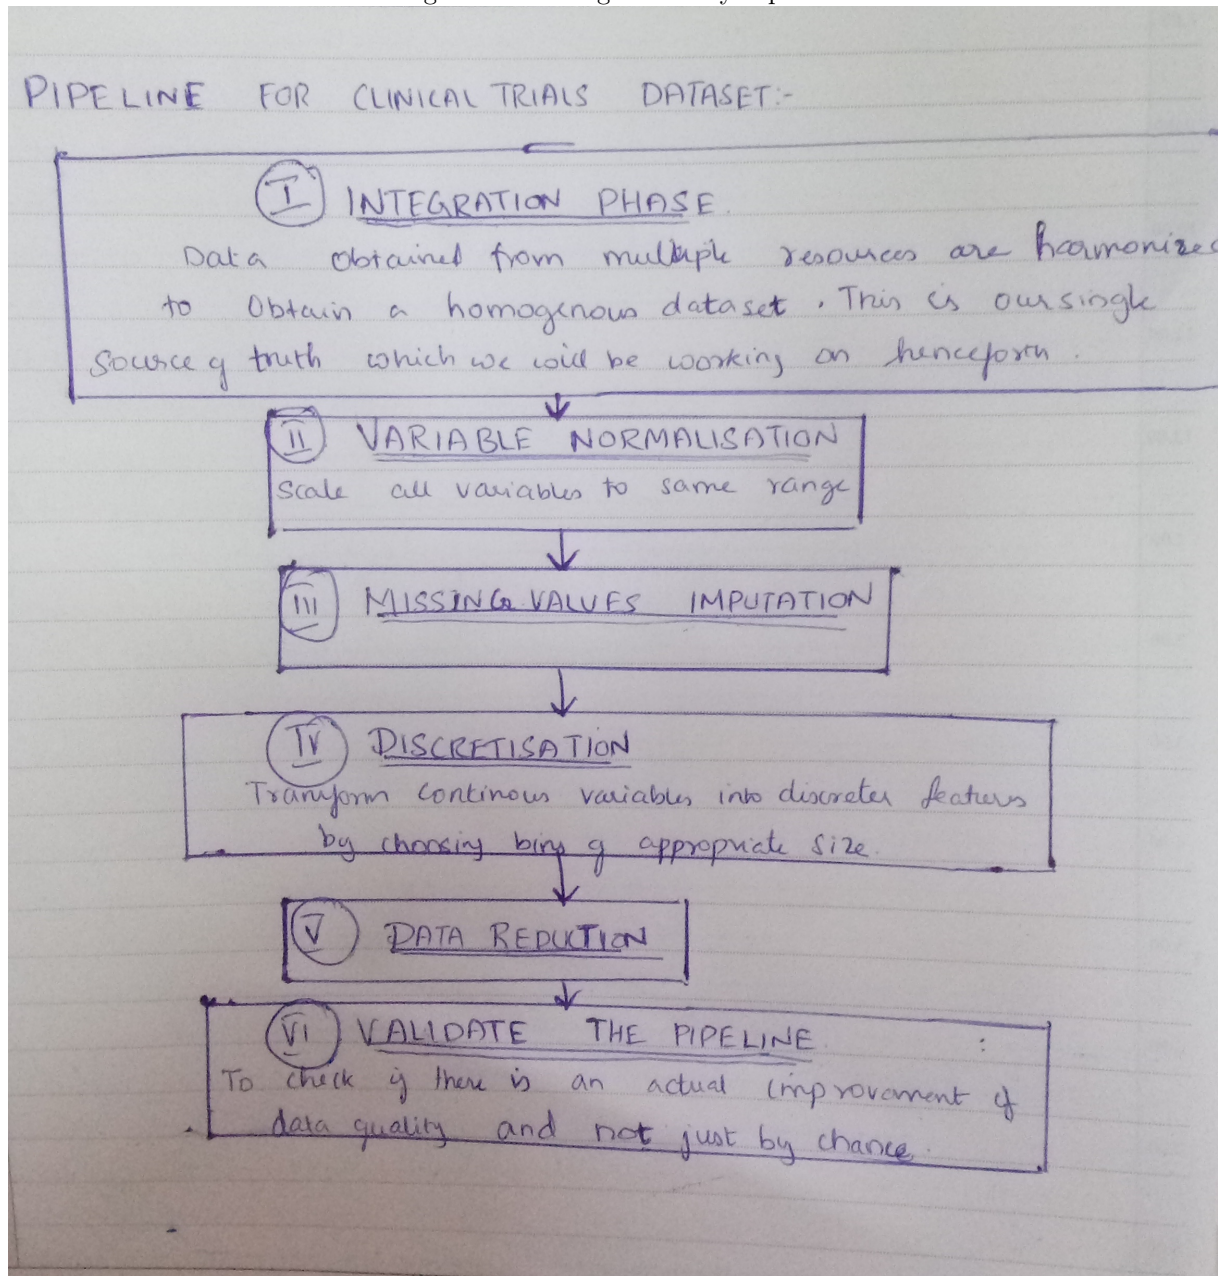 PIPELINE FOR CLINICAL TRIALS DATASET:-
I INTEGRATION PHASE.
Data obtained from multiple resources are harmonized
to Obtain a homogenous dataset. This is our single
Source of truth which we will be working on henceforth.
II VARIABLE NORMALISATION
Scale all variables to same range
III MISSING VALUES IMPUTATION
IV DISCRETISATION
Transform continous variables into discrete features
by choosing bins of appropriate size.
V DATA REDUCTION
VI VALIDATE THE PIPELINE.
To check if there is an actual improvement of
data quality and not just by chance.